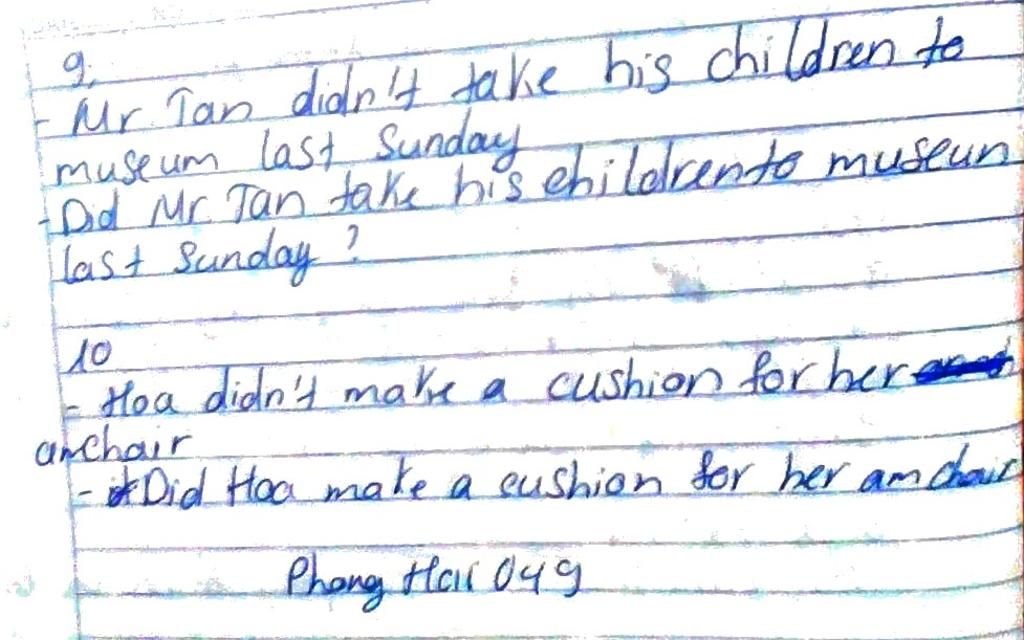 9,
- Mr Tan didn't take his children to
museum last Sunday
- Did Mr Tan take his children to museun
last Sunday ?
10
- Hoa didn't make a cushion for her
amchair
- Did Hoa make a cushion for her amchair
Phong 049